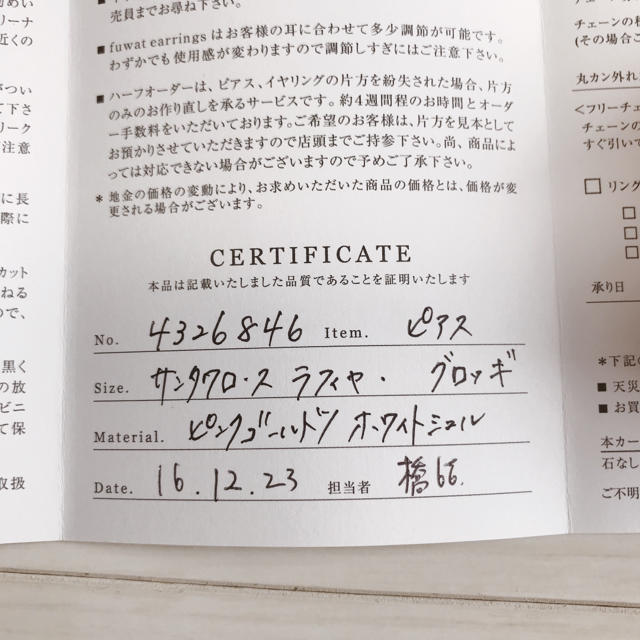 売員までお尋ね下さい。
■ fuwat earrings はお客様の耳に合わせて多少調節が可能です。
わずかでも使用感が変わりますので調節しすぎにはご注意下さい。
■ ハーフオーダーは、ピアス、イヤリングの片方を紛失された場合、片方
のみのお作り直しを承るサービスです。約4週間程のお時間とオーダ
ー手数料をいただいております。ご希望のお客様は、片方を見本として
お預かりさせていただきますので店頭までご持参下さい。尚、商品によ
っては対応できない場合がございますので予めご了承下さい。
* 地金の価格の変動により、お求めいただいた商品の価格とは、価格が変
更される場合がございます。
CERTIFICATE
本品は記載いたしました品質であることを証明いたします
No. 4326846 Item. ピアス
Size. サンタクロース ラフィヤ・ グロッギ
Material. ピンクゴールド ホワイトシェル
Date. 16.12.23 担当者
リーナ
近くの
がつい
て下さ
リーク
注意
に長
際に
カット
ねる
ので、
黒く
の放
ビニ
て保
取扱
チェーンの
(その場合
丸カン外れ
<フリーチェ
チェーンの
すぐ引いて
□ リング
□
□
□
承り日
*下記の
■ 天災
■ お買
本カー
石なし
ご不明